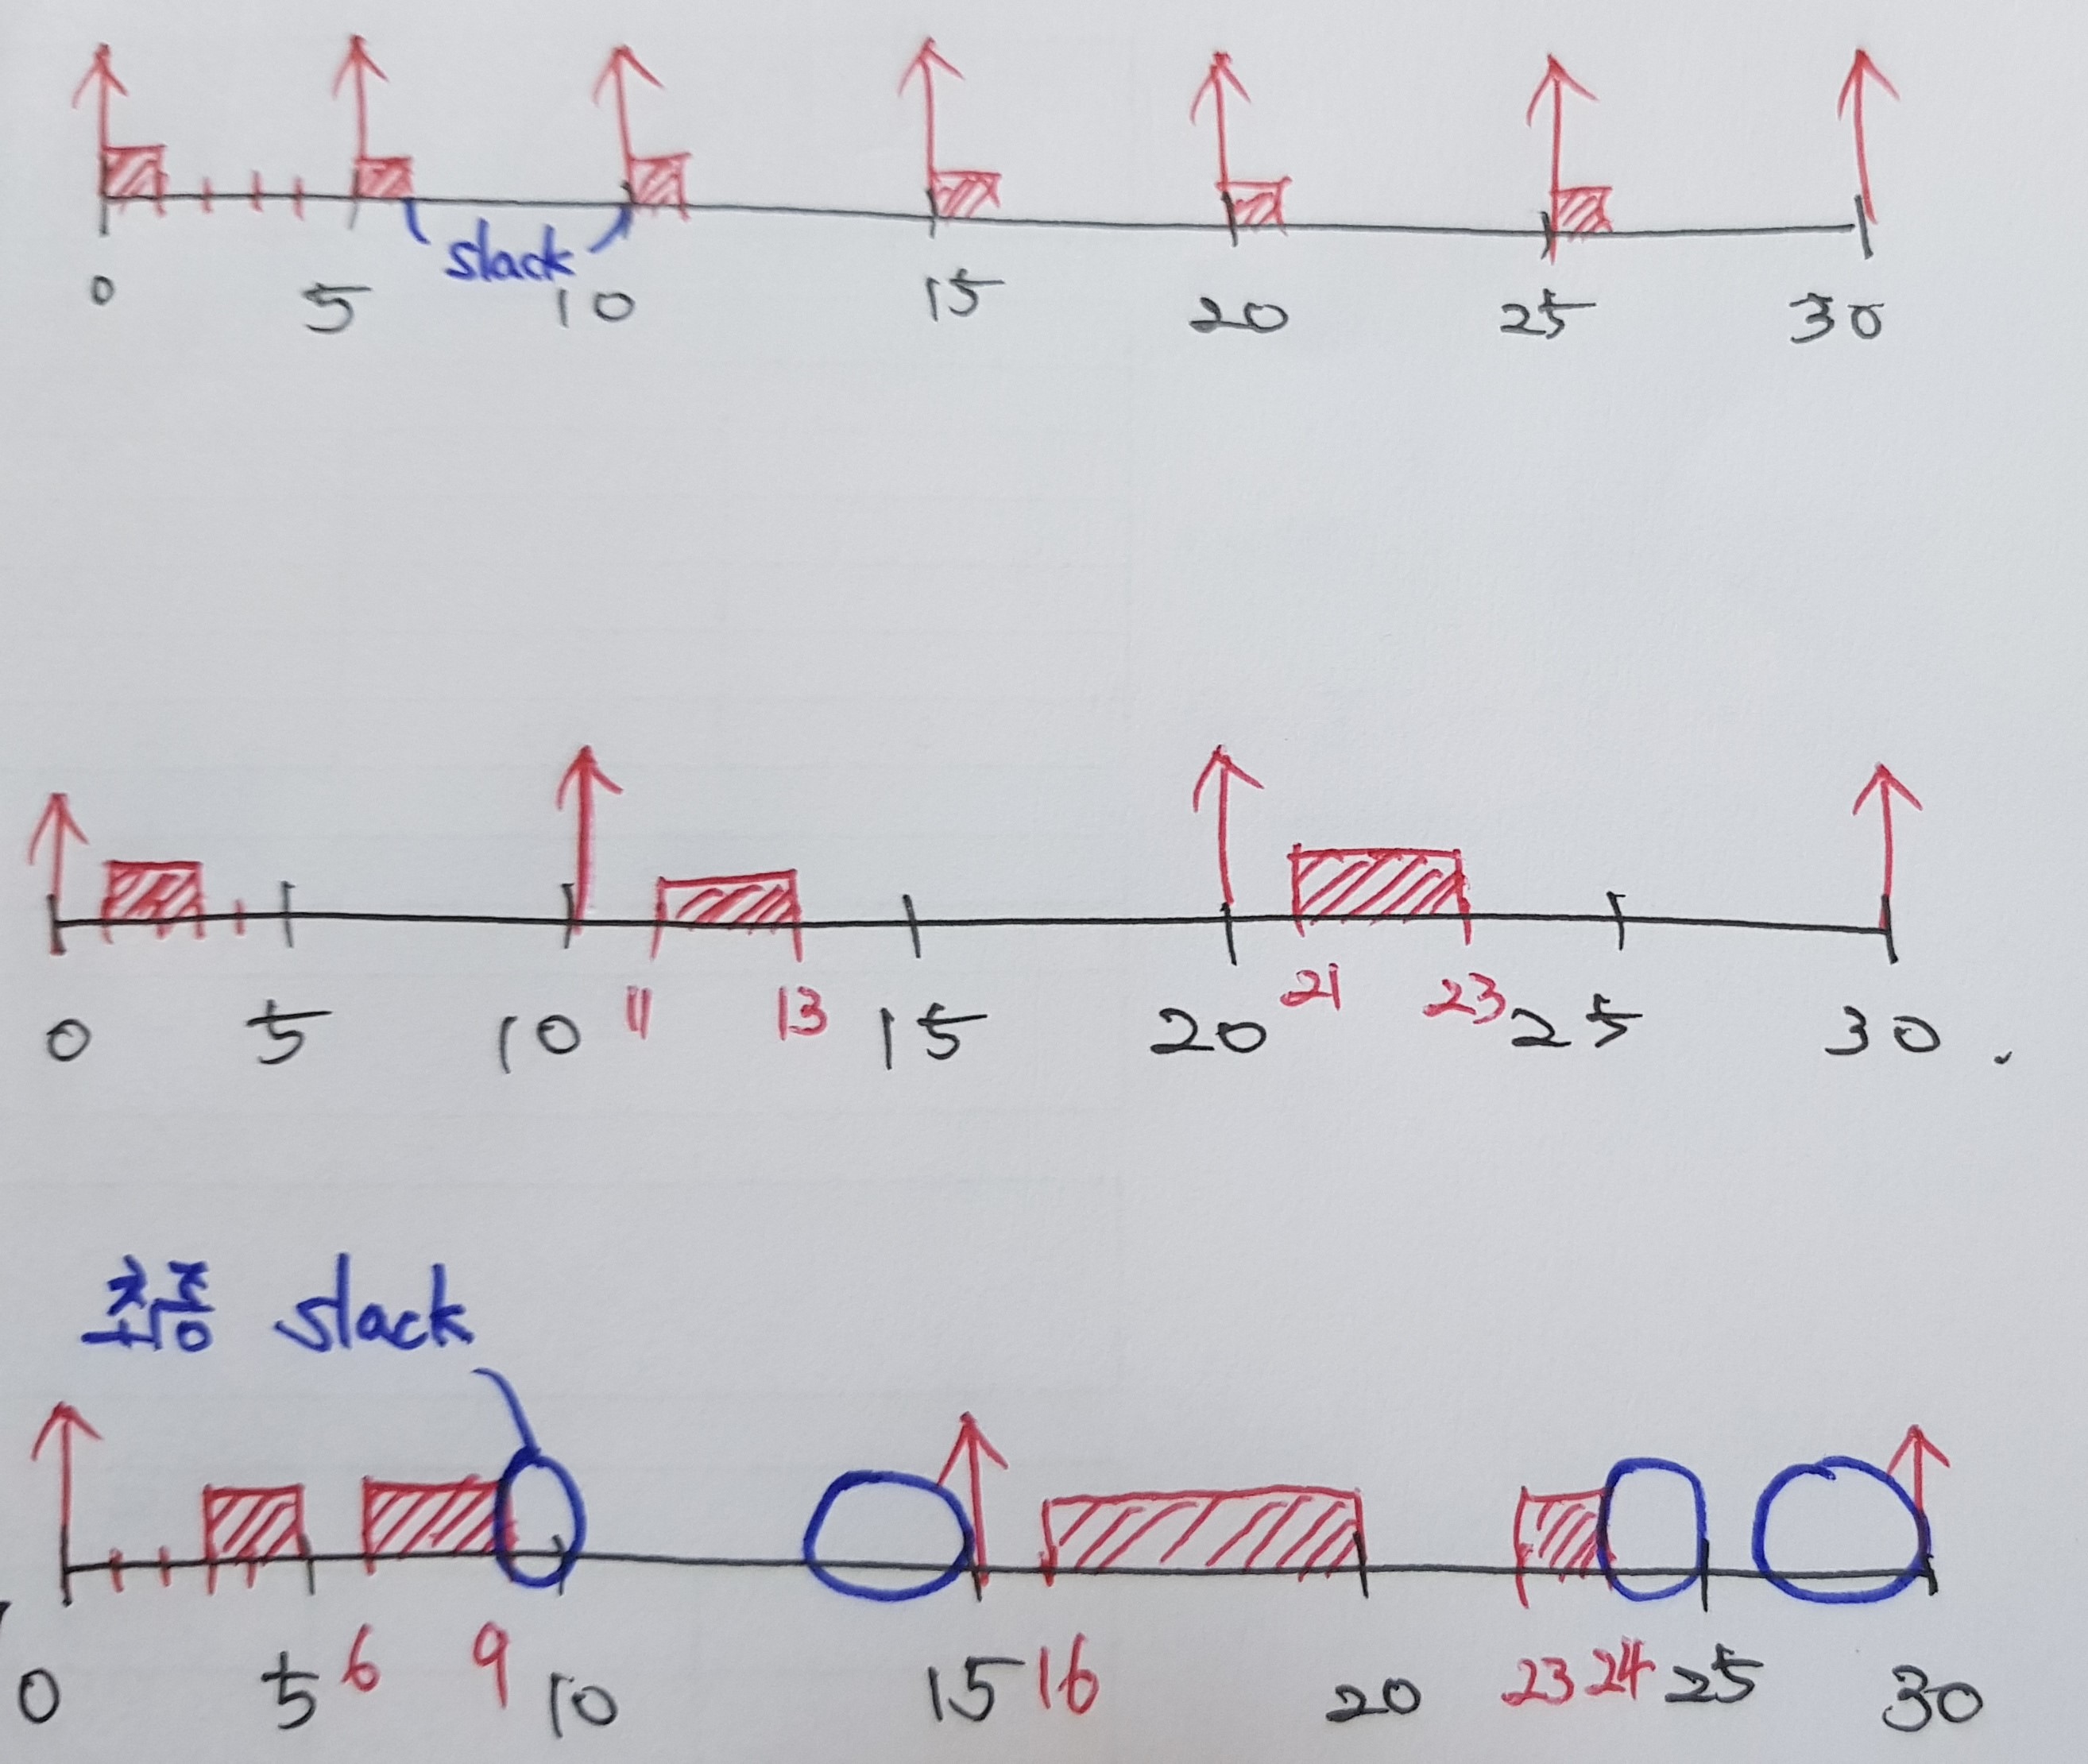 slack
0 5 10 15 20 25 30
0 5 10 11 13 15 20 21 23 25 30 .
최종 slack
0 5 6 9 10 15 16 20 23 24 25 30